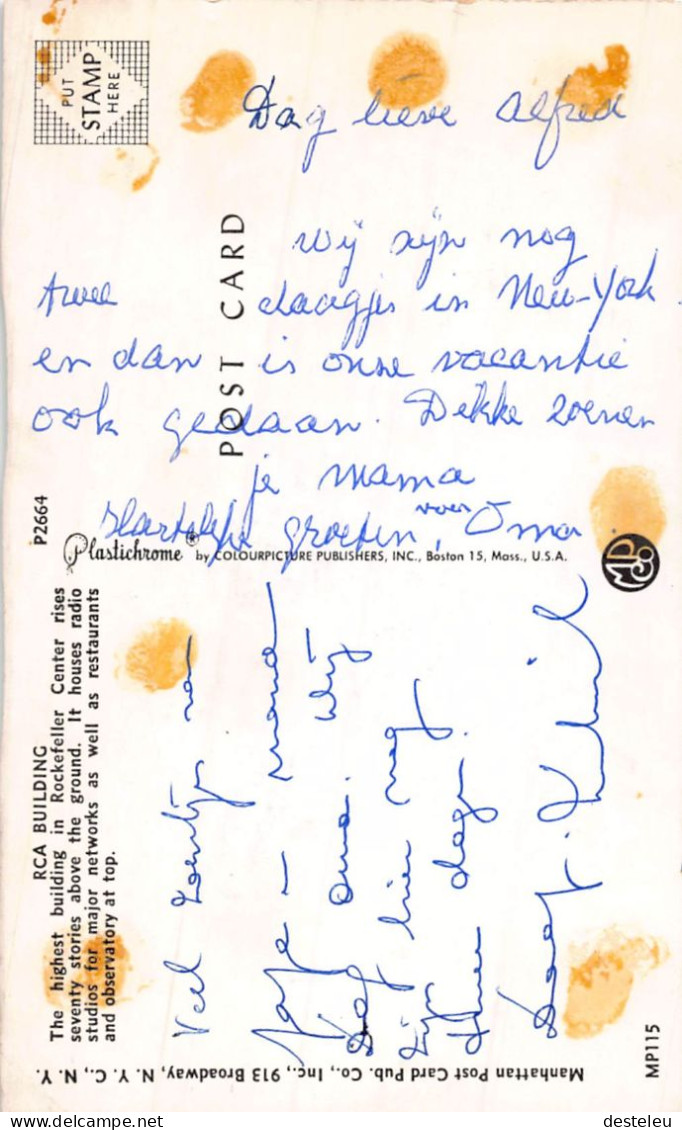 PUT
STAMP
HERE
Dag lieve Alfred
wij zijn nog
twee daagjes in New-York.
en dan is onze vacantie
ook gedaan. Dikke zoenen
je mama
Hartelijke groeten, voor Oma
POST CARD
P2664
Plastichrome ® by COLOURPICTURE PUBLISHERS, INC., Boston 15, Mass., U.S.A.
MPC Co
RCA BUILDING
The highest building in Rockefeller Center rises
seventy stories above the ground. It houses radio
studios for major networks as well as restaurants
and observatory at top.
Veel zoentjes van
papa - mama
Oma. Wij
zijn hier nog
dagen
Manhattan Post Card Pub. Co., Inc., 913 Broadway, N. Y. C., N. Y.
MP115
delcampe.net
desteleu